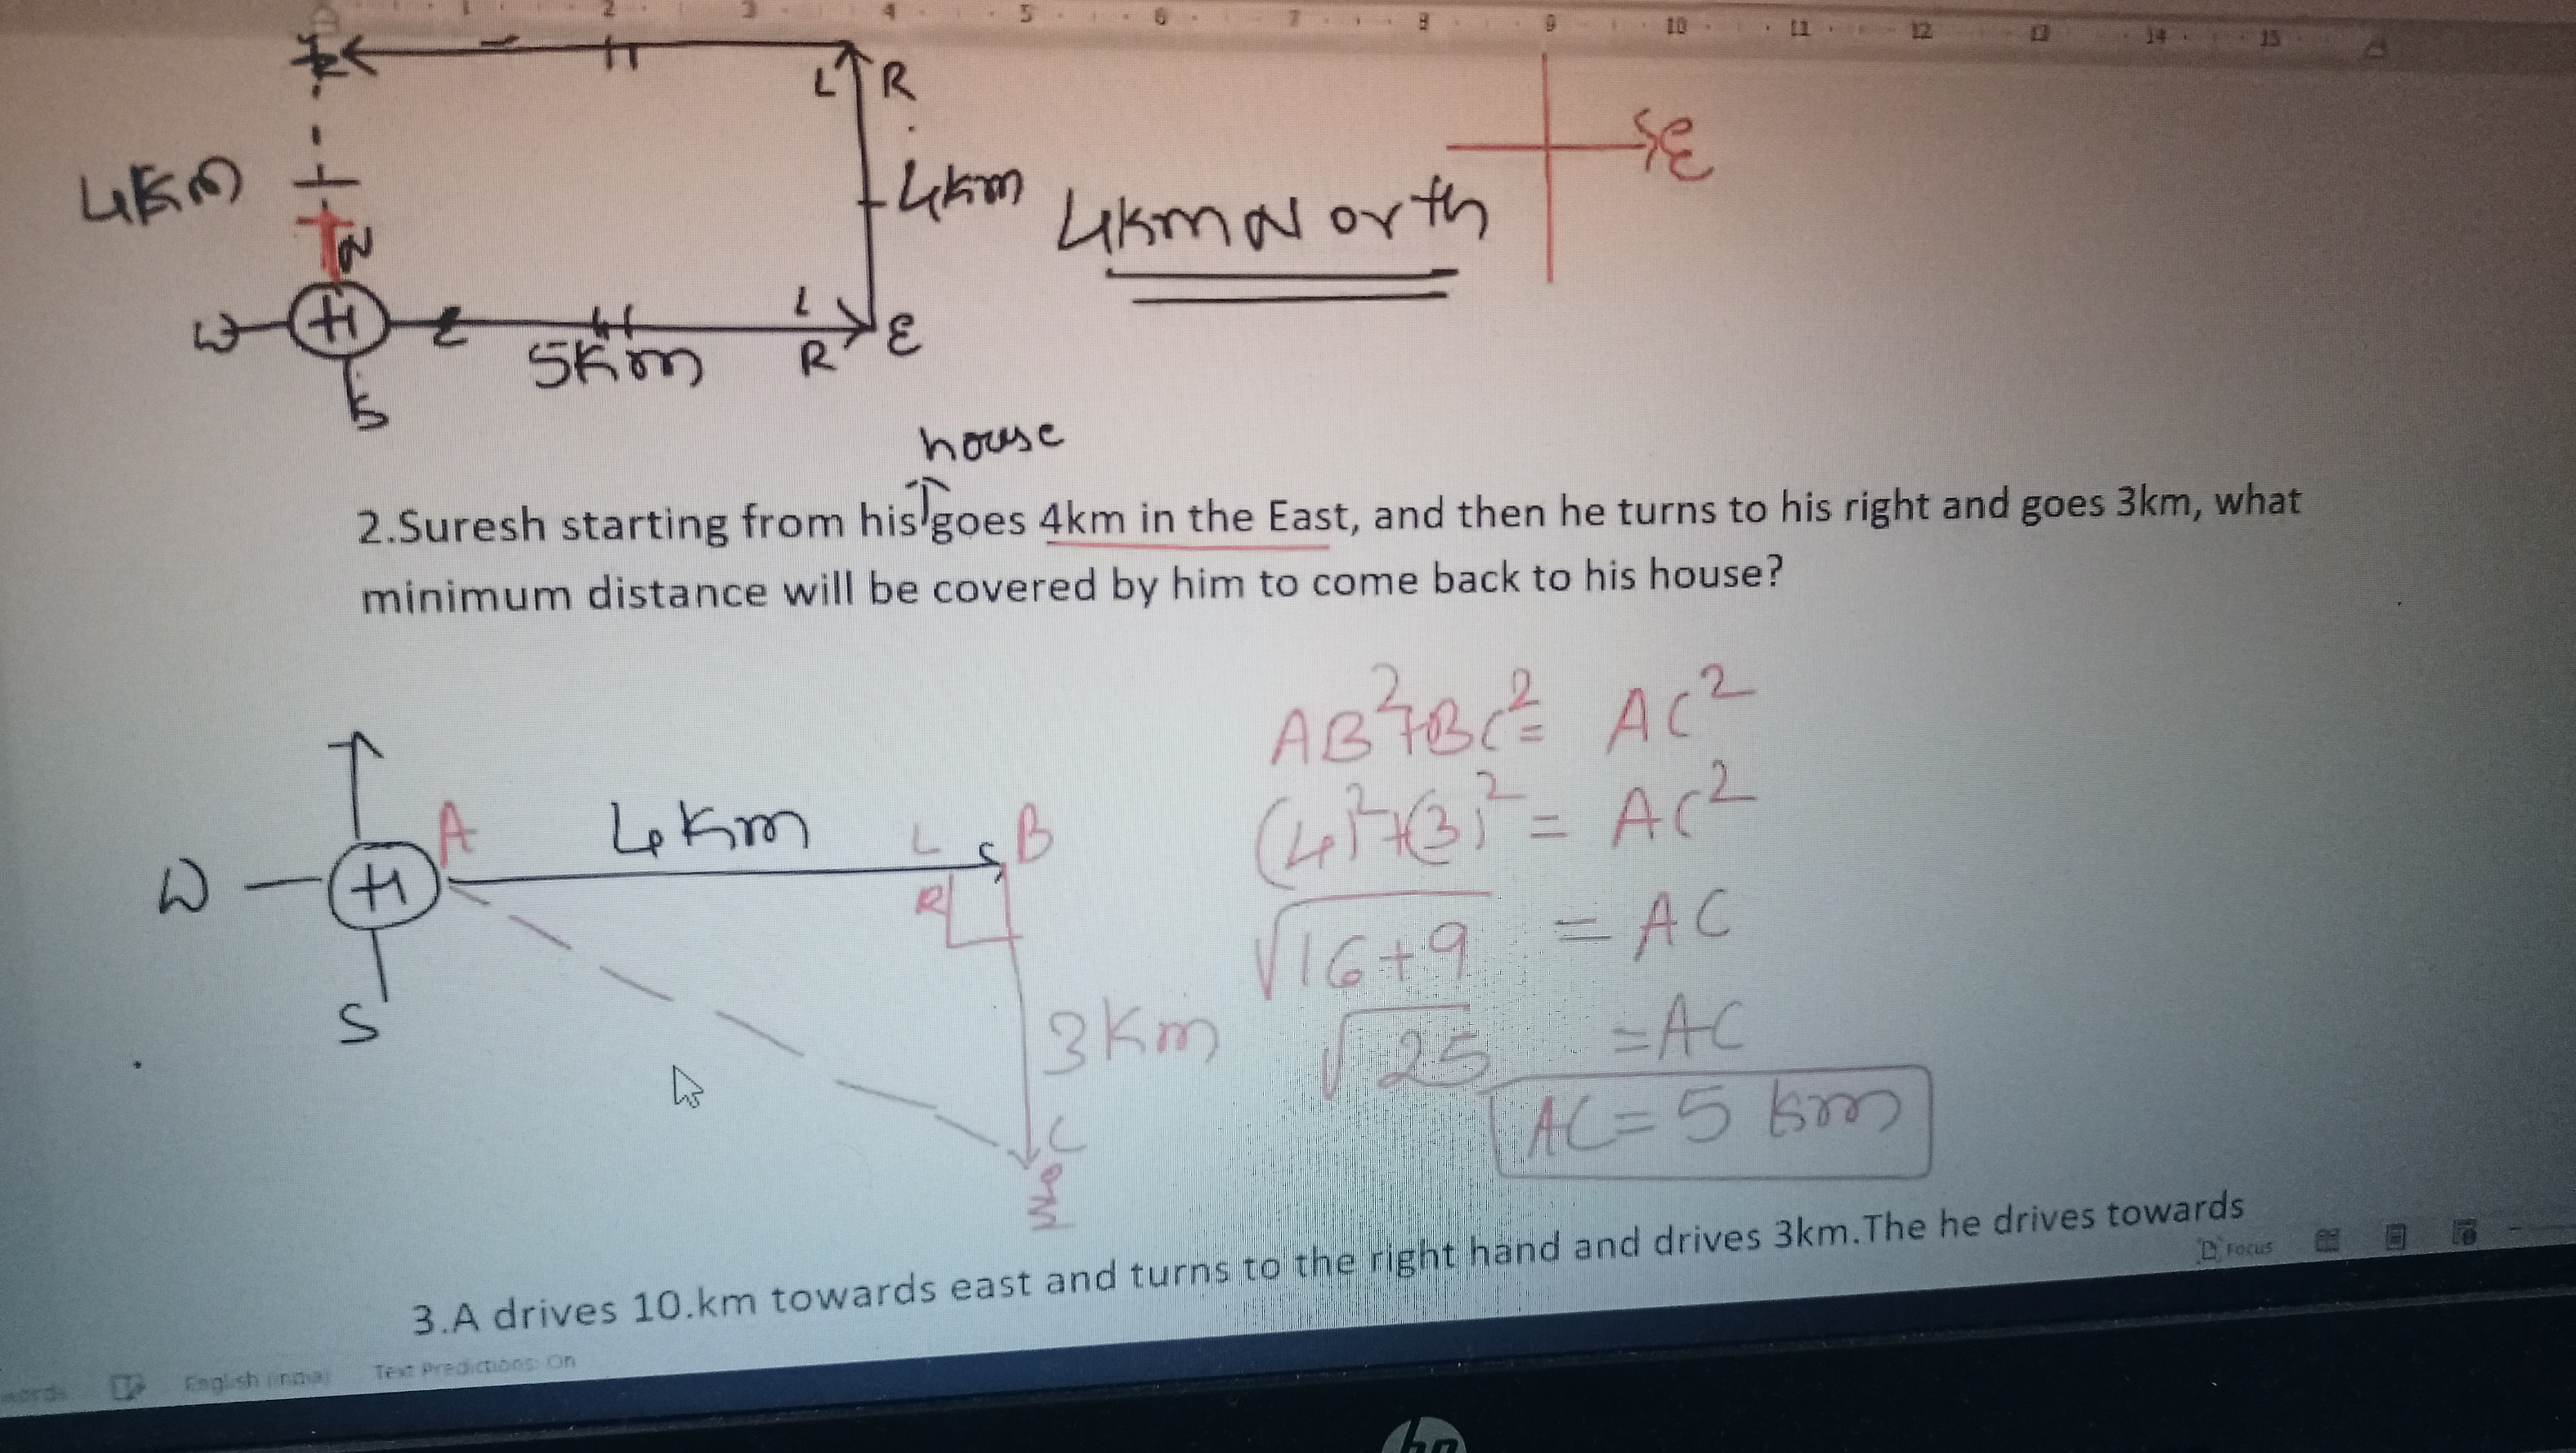 1 2 3 4 5 6 7 8 9 10 11 12 13 14 15
L R
4km
N
4km
4km North
E
W H E
L
5km R E
S
house
2.Suresh starting from his goes 4km in the East, and then he turns to his right and goes 3km, what
minimum distance will be covered by him to come back to his house?
AB²+BC² = AC²
A 4km L B
W H
R
S
(4)²+(3)² = AC²
√16+9 = AC
3km
√25 = AC
C
AC = 5 km
3.A drives 10.km towards east and turns to the right hand and drives 3km.The he drives towards
words English (India) Text Predictions: On Focus
hp